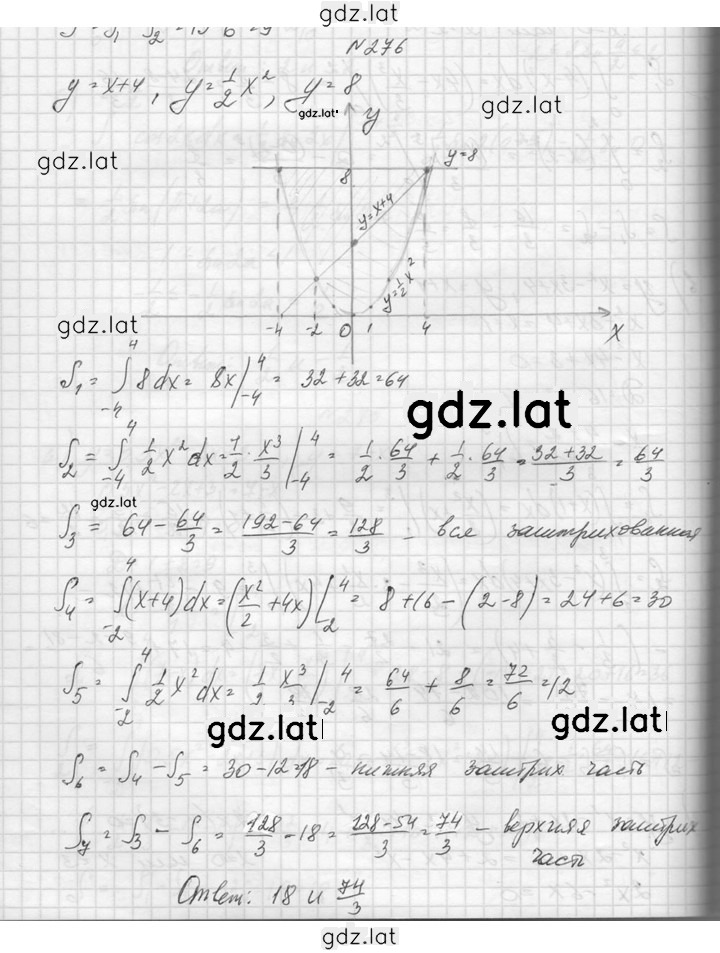 gdz.lat
N 276
y = x+4, y = 1/2 x², y = 8
gdz.lat
gdz.lat
gdz.lat
y
y=8
8
y=x+4
y=1/2 x²
-4 -2 0 1 4 x
gdz.lat
S₁ = ∫₋₄⁴ 8dx = 8x|₋₄⁴ = 32+32=64
gdz.lat
S₂ = ∫₋₄⁴ 1/2 x² dx = 1/2 · x³/3 |₋₄⁴ = 1/2 · 64/3 + 1/2 · 64/3 = (32+32)/3 = 64/3
gdz.lat
S₃ = 64 - 64/3 = (192-64)/3 = 128/3 - вся заштрихованная
S₄ = ∫₋₂⁴ (x+4)dx = (x²/2 + 4x)|₋₂⁴ = 8+16-(2-8) = 24+6=30
S₅ = ∫₋₂⁴ 1/2 x² dx = 1/2 x³/3 |₋₂⁴ = 64/6 + 8/6 = 72/6 = 12
gdz.lat
gdz.lat
S₆ = S₄ - S₅ = 30-12=18 - нижняя заштрих часть
S₇ = S₃ - S₆ = 128/3 - 18 = (128-54)/3 = 74/3 - верхняя заштрих
часть
Ответ: 18 и 74/3
gdz.lat